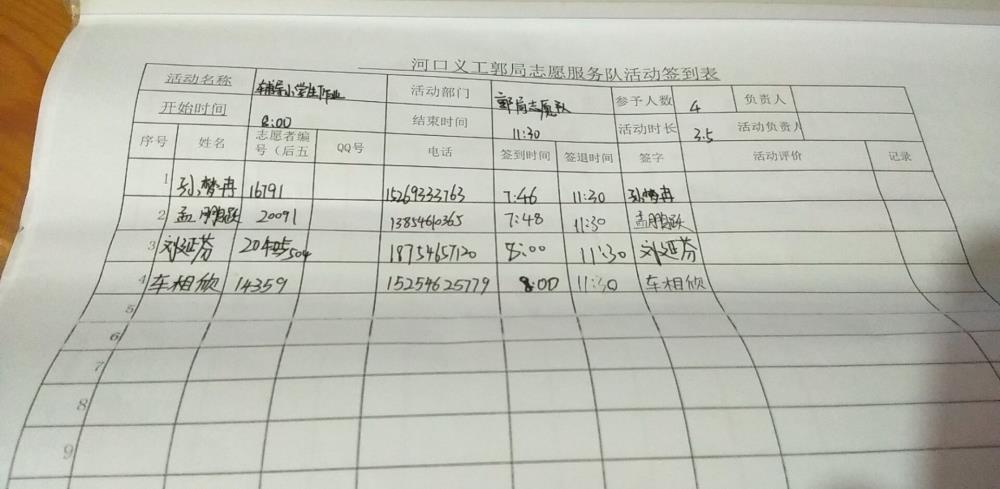 河口义工郭局志愿服务队活动签到表
活动名称 辅导小学生作业 活动部门 郭局志愿队 参予人数 4 负责人
开始时间 8:00 结束时间 11:30 活动时长 3.5 活动负责人
序号 姓名 志愿者编号（后五 QQ号 电话 签到时间 签退时间 签字 活动评价 记录
1 孙梦冉 16791 15269333763 7:46 11:30 孙梦冉
2 孟鹏跃 20091 13854610365 7:48 11:30 孟鹏跃
3 刘延芬 18754657120 8:00 11:30 刘延芬
4 车相欣 14359 15254625779 8:00 11:30 车相欣
5
6
7
8
9